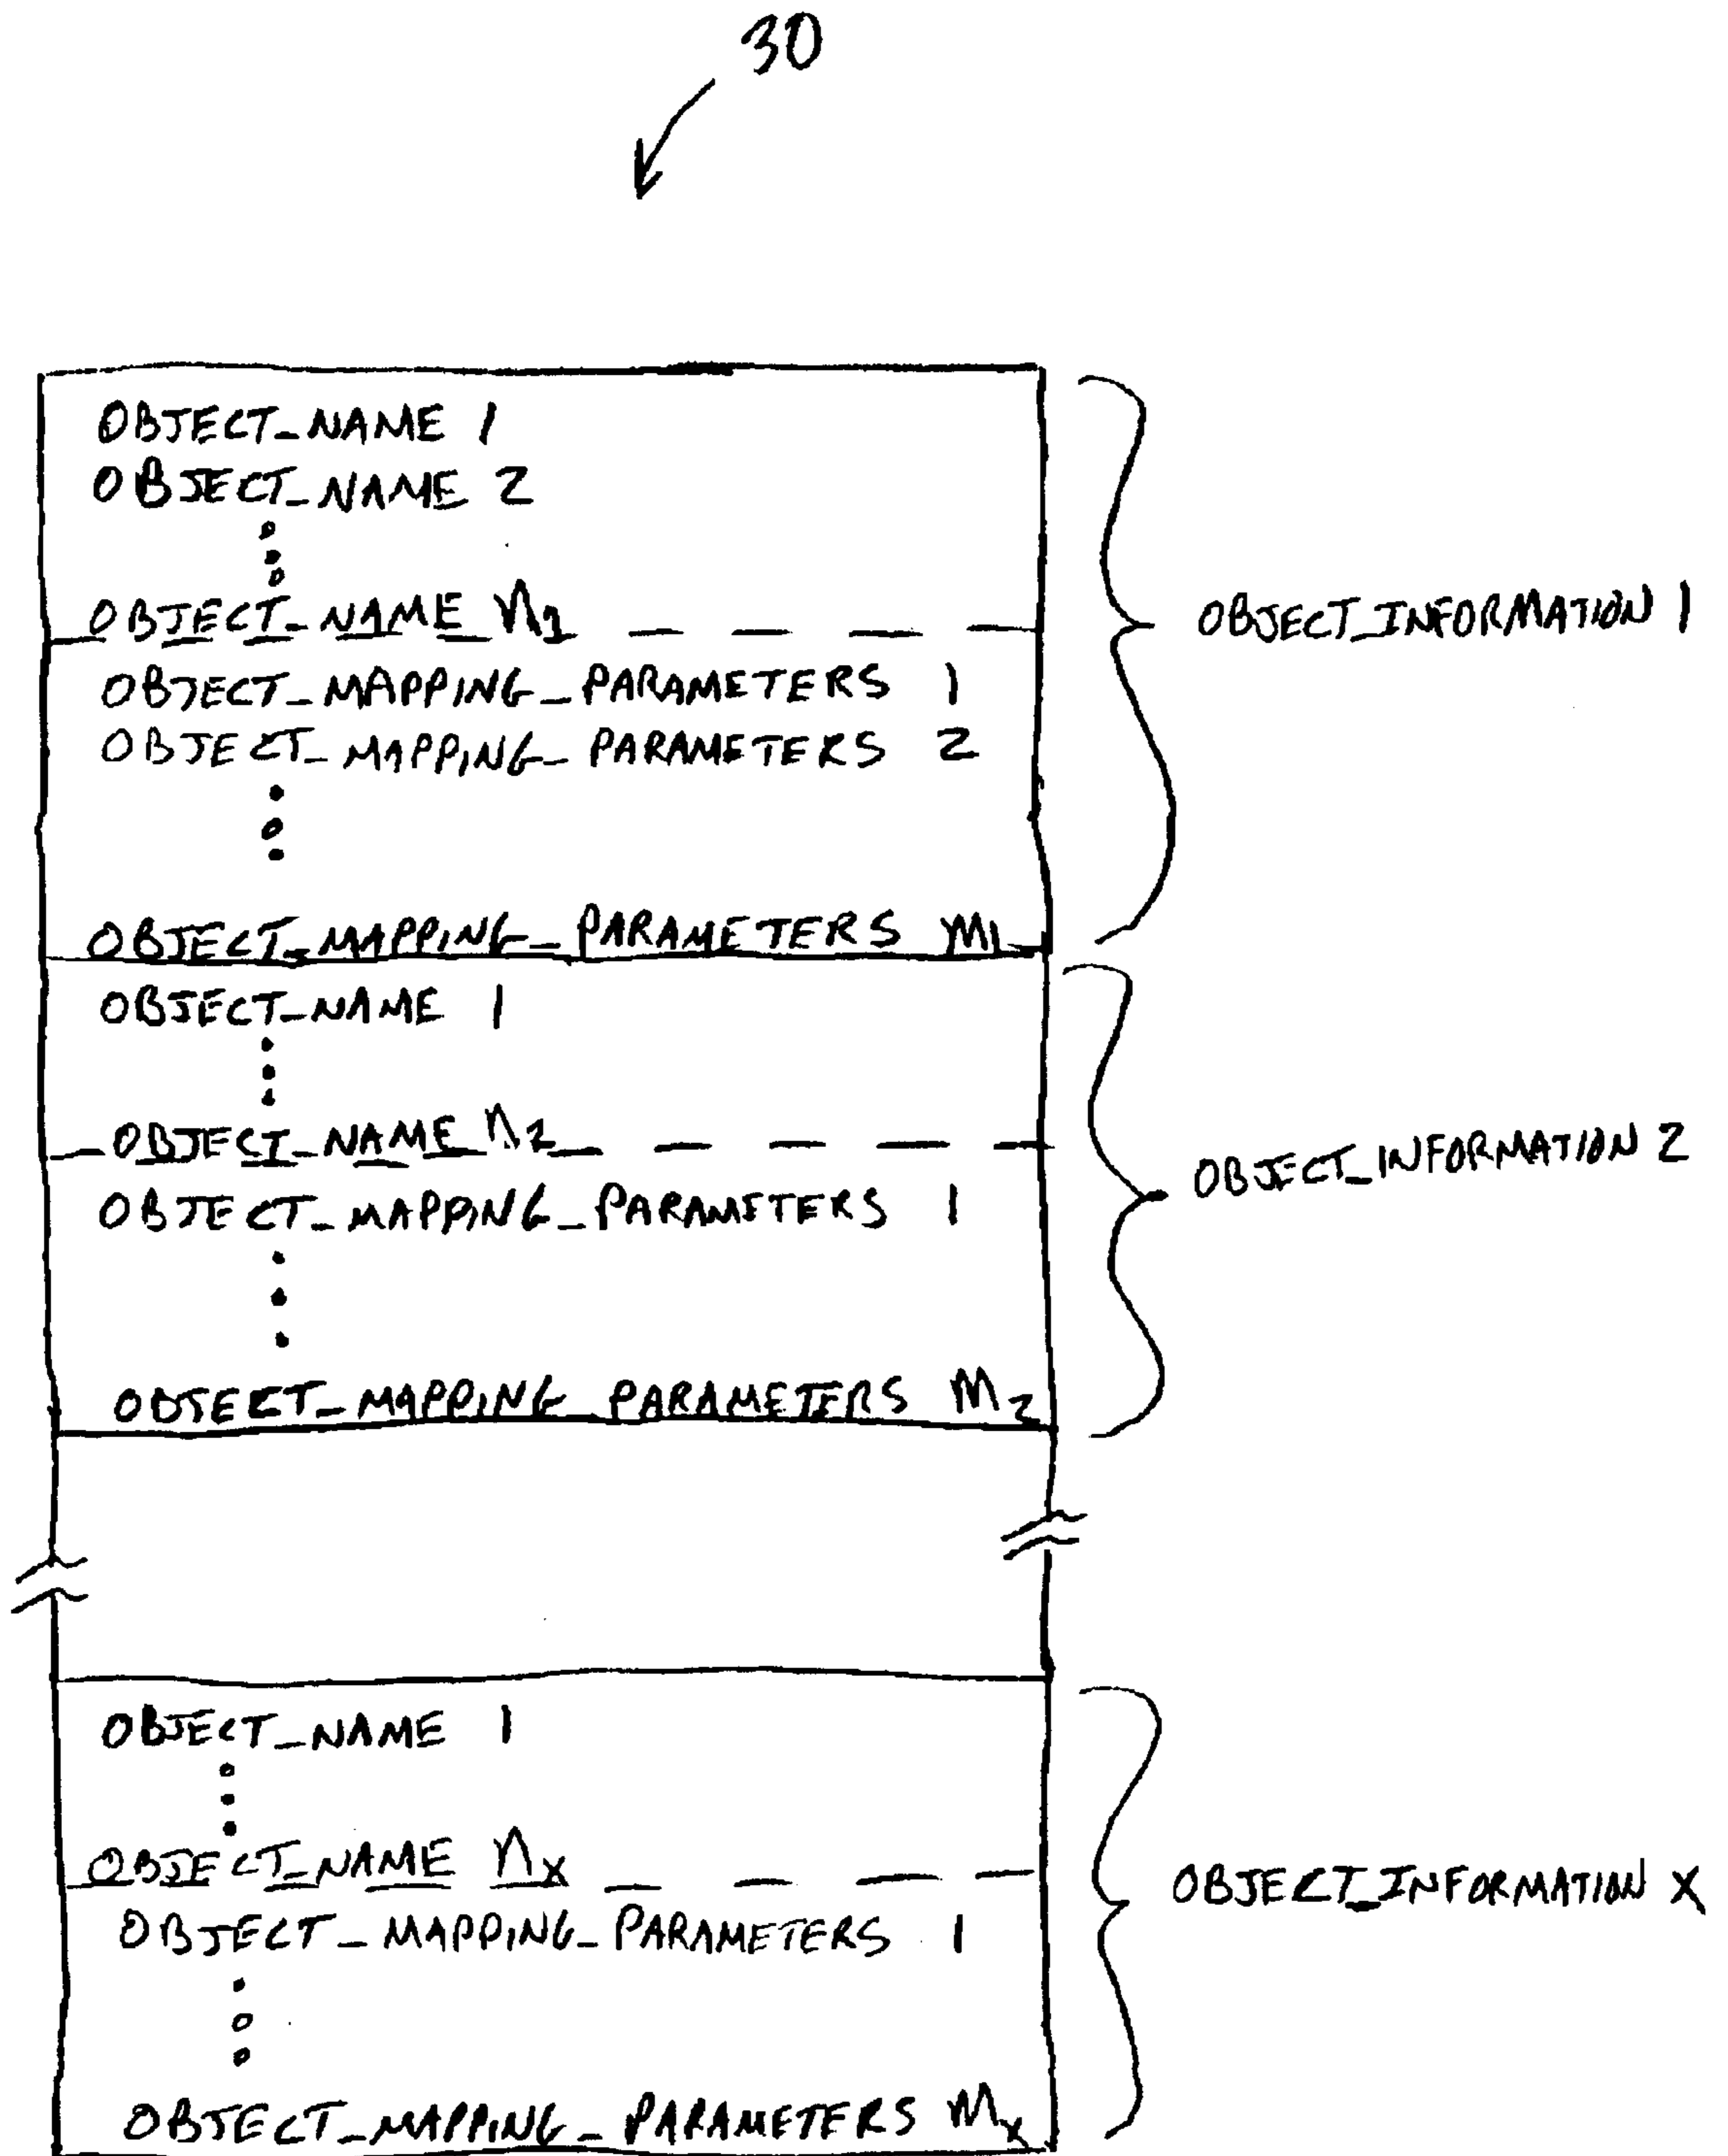 30
OBJECT_NAME 1
OBJECT_NAME 2
OBJECT_NAME n1
OBJECT_MAPPING_PARAMETERS 1
OBJECT_MAPPING_PARAMETERS 2
OBJECT_MAPPING_PARAMETERS M1
OBJECT_INFORMATION 1
OBJECT_NAME 1
OBJECT_NAME n2
OBJECT_MAPPING_PARAMETERS 1
OBJECT_MAPPING_PARAMETERS M2
OBJECT_INFORMATION 2
OBJECT_NAME 1
OBJECT_NAME nx
OBJECT_MAPPING_PARAMETERS 1
OBJECT_MAPPING_PARAMETERS Mx
OBJECT_INFORMATION X